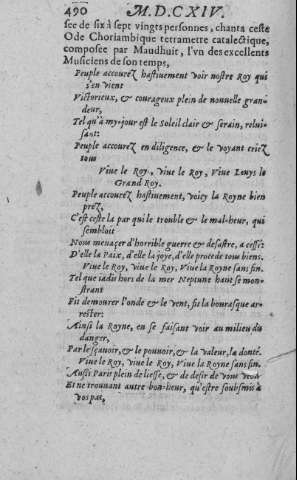 490 M.D.CXIV.
sée de six à sept vingts personnes, chanta ceste
Ode Choriambique tetrametre catalectique,
composée par Mauduit, l'vn des excellents
Musiciens de son temps,
Peuple accourez hastiuement voir nostre Roy qui
s'en vient
Victorieux, & courageux plein de nouuelle gran-
deur,
Tel qu'à my-jour est le Soleil clair & serain, relui-
sant:
Peuple accourez en diligence, & le voyant criez
tous
Viue le Roy, viue le Roy, Viue Louys le
Grand Roy.
Peuple accourez hastiuement, voicy la Royne bien
prez,
C'est ceste là par qui le trouble & le mal-heur, qui
sembloit
Nous menaçer d'horrible guerre & desastre, a cessé:
D'elle la Paix, d'elle la joye, d'elle procede tous biens.
Viue le Roy, viue le Roy, Viue la Royne sans fin.
Tel que iadis hors de la mer Neptune haut se mon-
strant
Fit demeurer l'onde & le vent, fit la bourasque ar-
rester:
Ainsi la Royne, en se faisant voir au milieu du
danger,
Par le sçauoir, & le pouuoir, & la valeur, l'a donté.
Viue le Roy, viue le Roy, Viue la Royne sans fin.
Aussi Paris plein de liesse, & de desir de vous
Et ne trouuant autre bon-heur, qu'estre soubsmis à
vos pas,